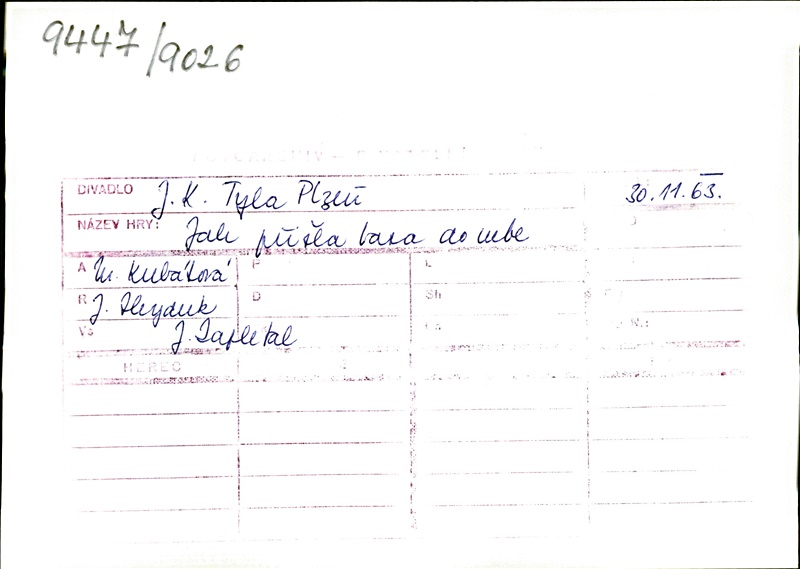 9447/9026
DIVADLO J. K. Tyla Plzeň 30.11.63.
NÁZEV HRY: Jak přišla basa do nebe
A M. Kubátová P
R J. D
VS J. Zapletal
HEREC